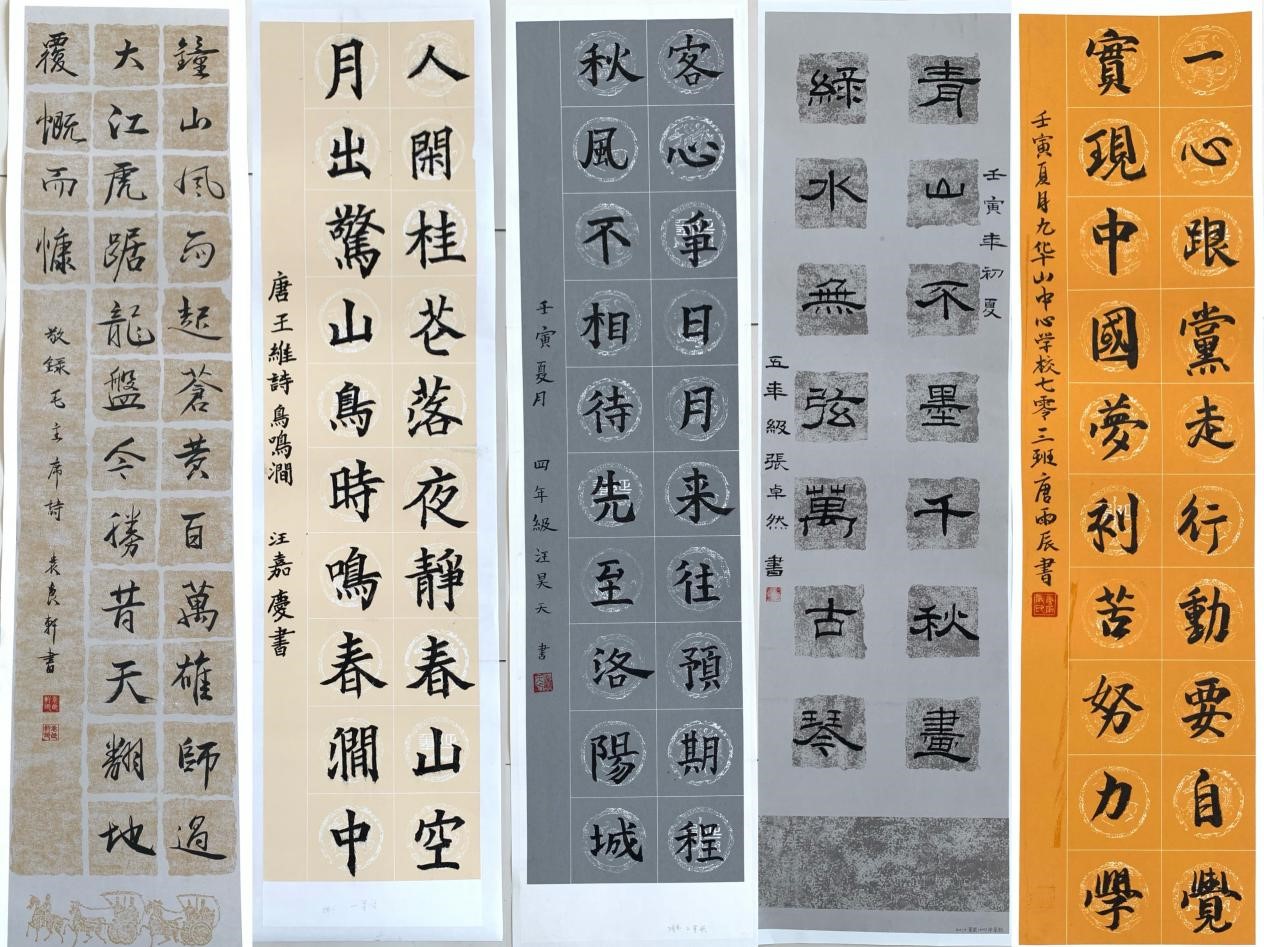 鐘山风雨起蒼黄百萬雄師過
大江虎踞龍盤今勝昔天翻地
覆慨而慷
敬録毛主席詩 軒書
人閑桂花落夜靜春山空
月出驚山鳥時鳴春澗中
唐王維詩鳥鳴澗 汪嘉慶書
客心爭日月来往預期程
秋風不相待先至洛陽城
壬寅夏月 四年級汪昊天 書
壬寅年初夏
青山不墨千秋畫
緑水無弦萬古琴
五年級張卓然書
一心跟黨走行動要自覺
實現中國夢刻苦努力學
壬寅夏月九华山中心学校七零三班唐雨辰書